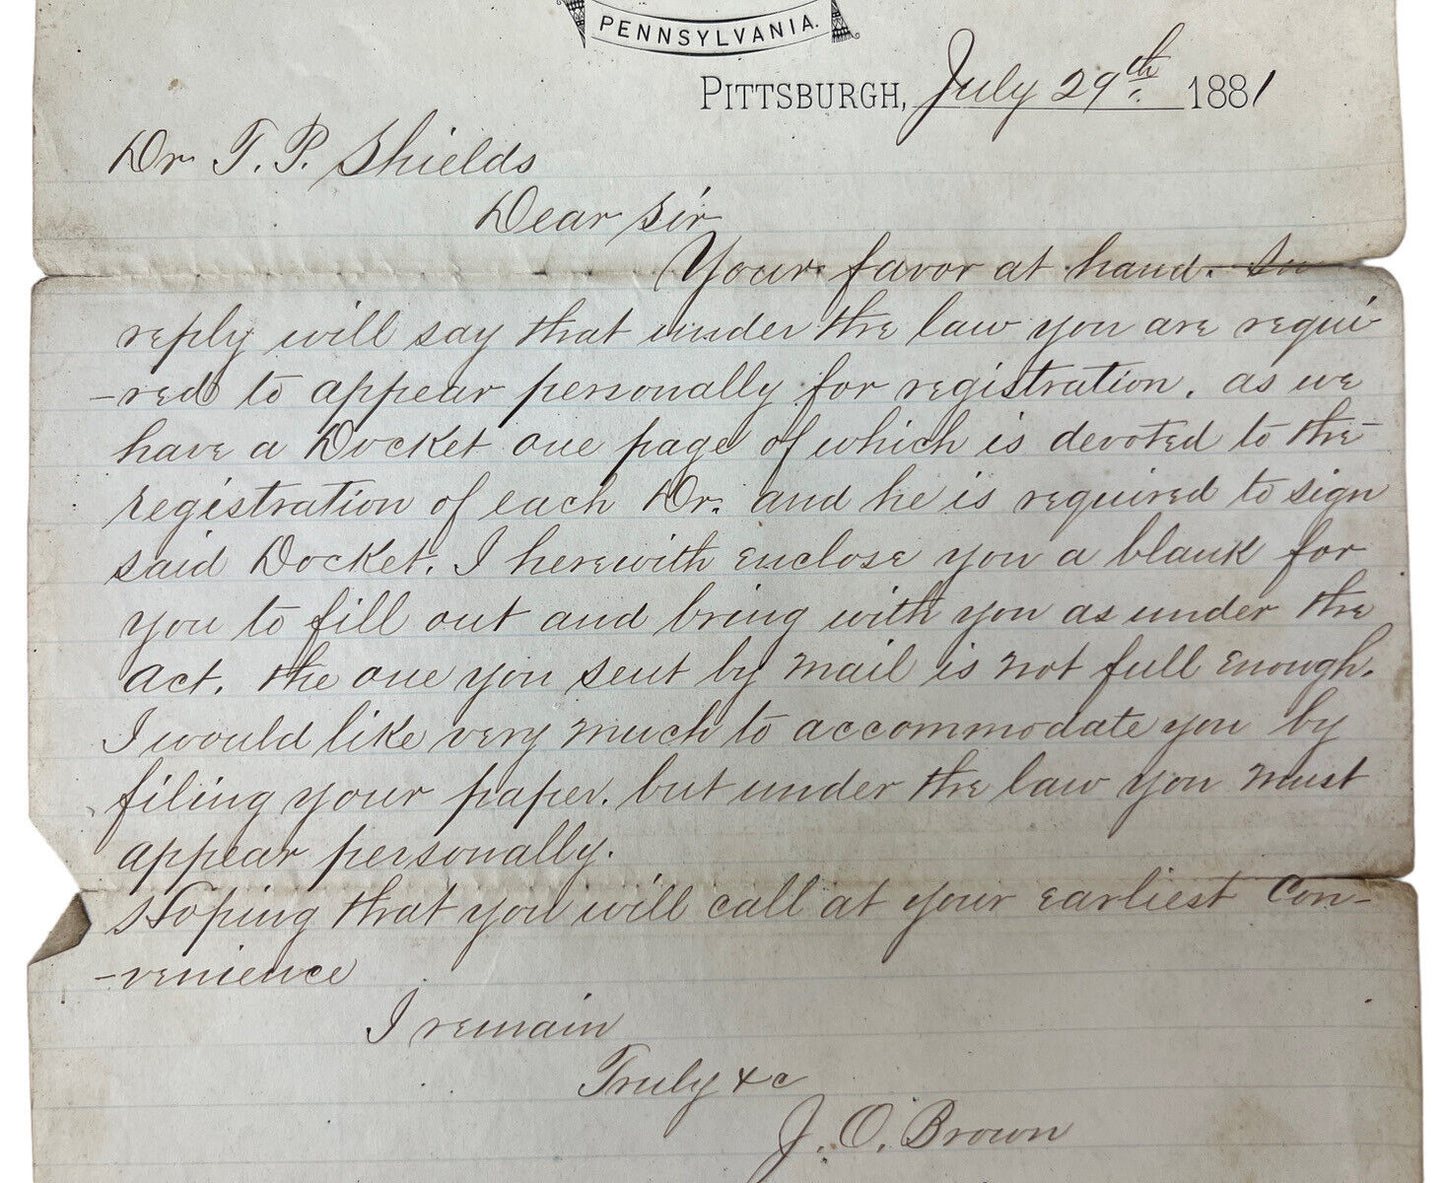 PENNSYLVANIA.
PITTSBURGH, July 29th 1881
Dr T. P. Shields
Dear Sir
Your favor at hand. In
reply will say that under the law you are requi-
-red to appear personally for registration. as we
have a Docket one page of which is devoted to the
registration of each Dr. and he is required to sign
said Docket. I herewith enclose you a blank for
you to fill out and bring with you as under the
act. the one you sent by mail is not full enough.
I would like very much to accommodate you by
filing your paper. but under the law you must
appear personally.
Hoping that you will call at your earliest Con-
-venience
I remain
Truly &c
J. O. Brown